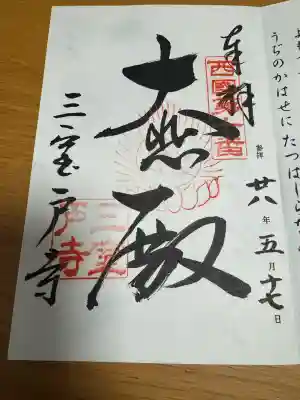 うぢのかはせに たつはしらな
奉拝
西國十番
参拝 廿八年五月十七日
大悲殿
三室戸寺
三室
戸寺